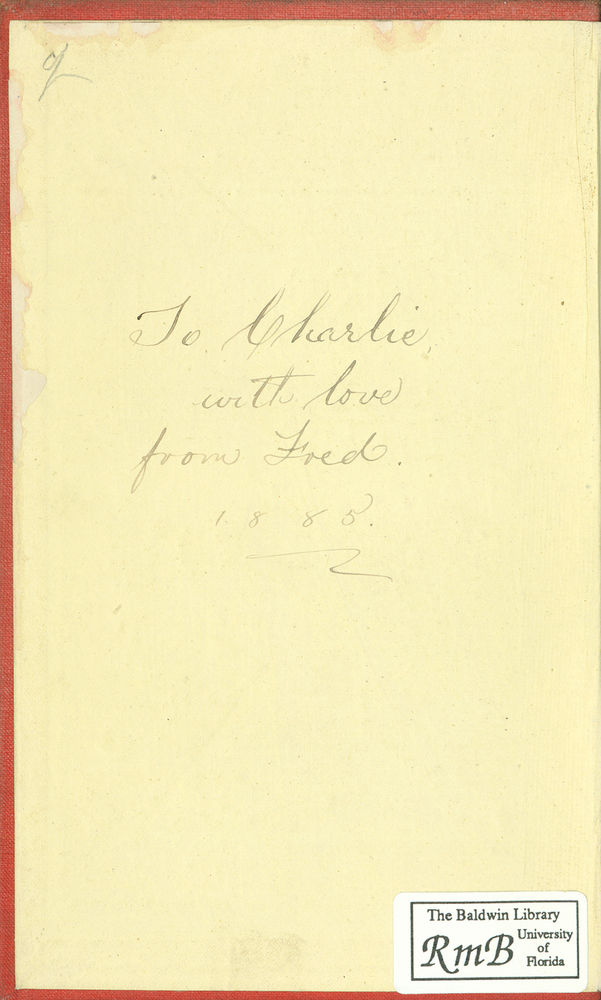 To Charlie,
with love
from Fred.
1885.
The Baldwin Library
RmB University
of
Florida